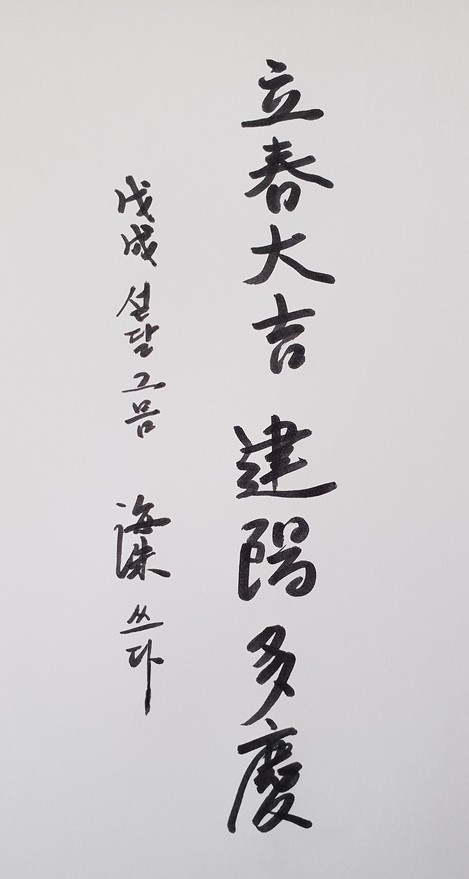 立春大吉 建陽多慶
戊戌 섣달 그믐 쓰다